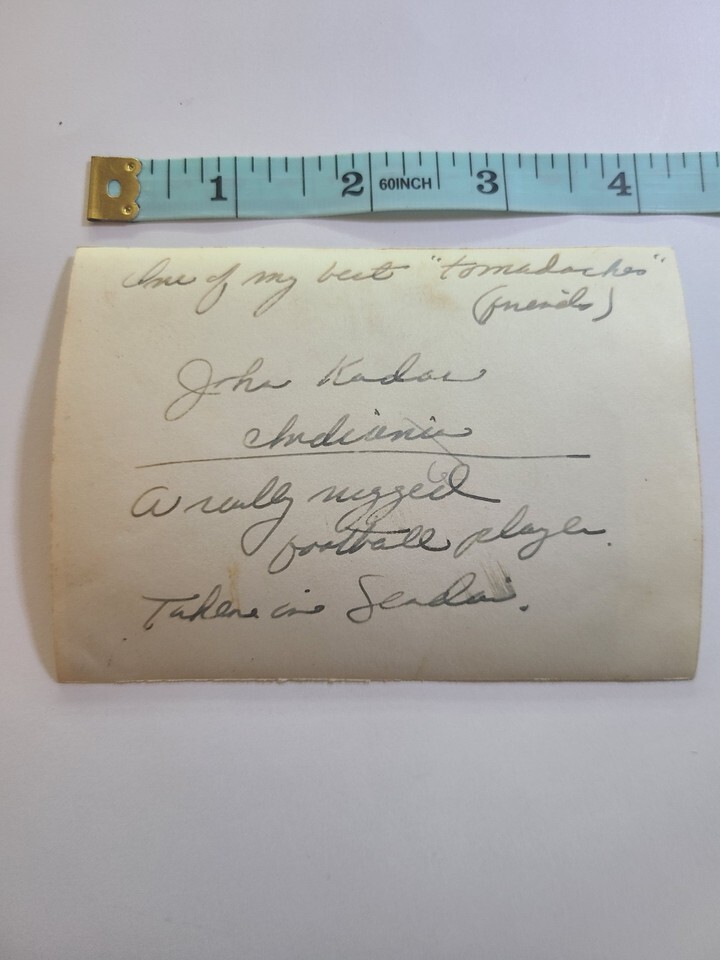 1 2 60INCH 3 4
One of my best "tomadaches"
(friends)
John Kadar
Indiania
A really rugged
football player.
Taken in Sendai.